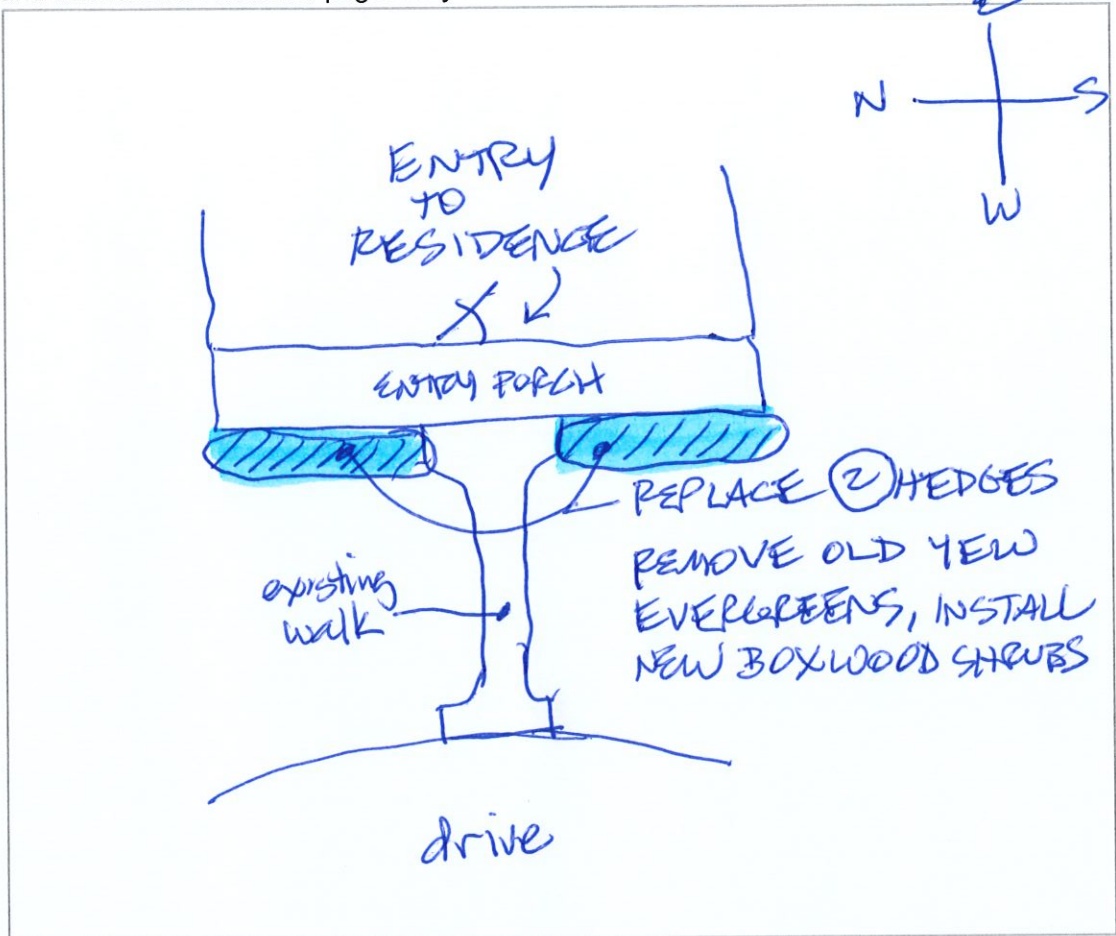 E
N
S
W
ENTRY
TO
RESIDENCE
ENTRY PORCH
REPLACE 2 HEDGES
REMOVE OLD YEW
EVERGREENS, INSTALL
NEW BOXWOOD SHRUBS
existing
walk
drive